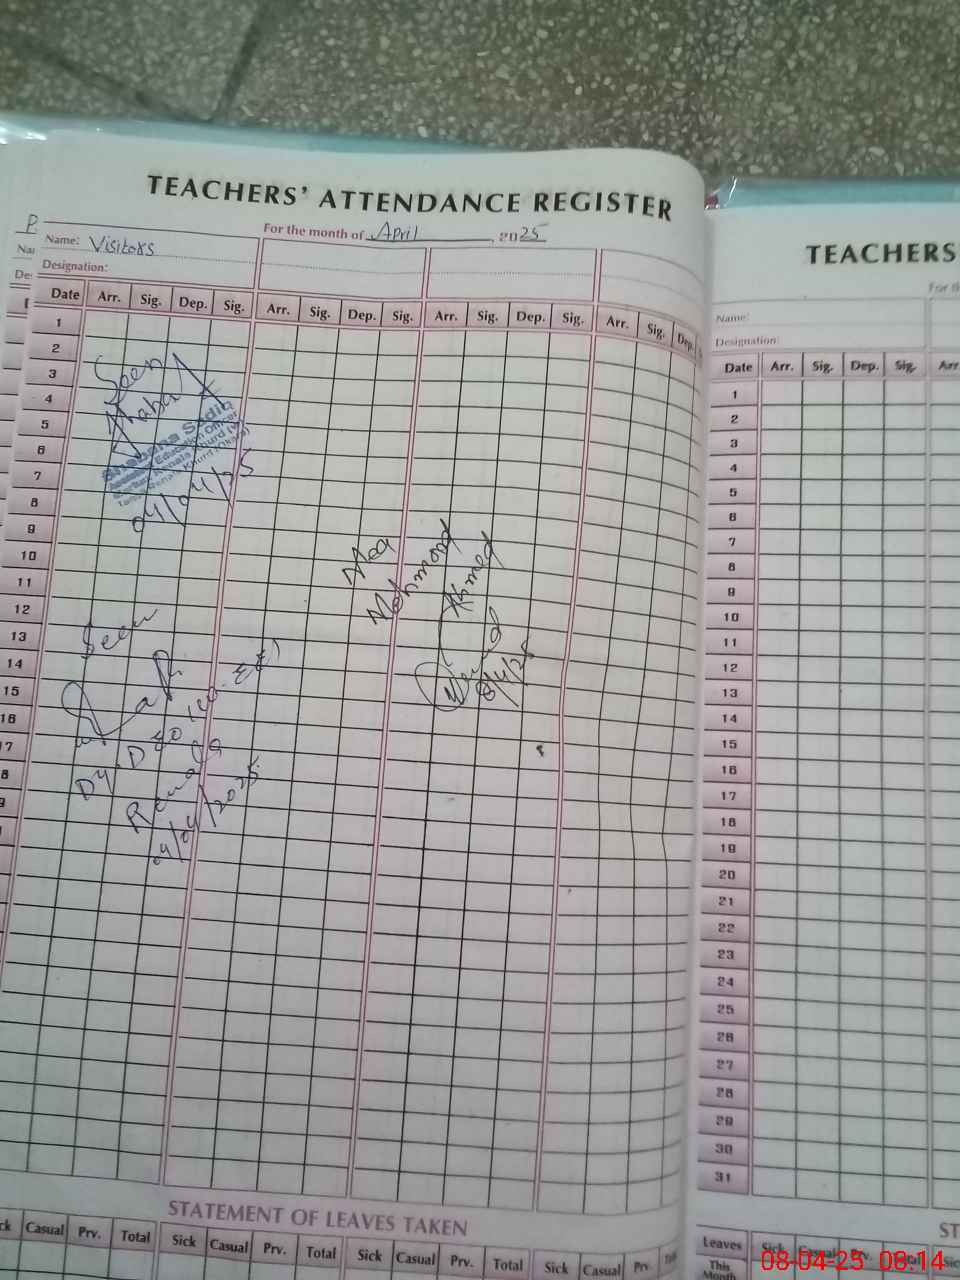 TEACHERS' ATTENDANCE REGISTER
Name: Visitors
For the month of April, 2025
Designation:
Date Arr. Sig. Dep. Sig. Arr. Sig. Dep. Sig. Arr. Sig. Dep. Sig. Arr. Sig. Dep.
1
2
3
4
5
6
7
8
9
10
11
12
13
14
15
16
17
Seen
Shabana Sadiq
Assistant Education Officer
04/04/25
Seen
Renala
04/04/2025
Aea
Mehmood
Ahmed
8/4/25
STATEMENT OF LEAVES TAKEN
Casual Prv. Total Sick Casual Prv. Total Sick Casual Prv. Total Sick Casual Prv.
TEACHERS'
Name:
Designation:
Date Arr. Sig. Dep. Sig. Arr.
1
2
3
4
5
6
7
8
9
10
11
12
13
14
15
16
17
18
19
20
21
22
23
24
25
26
27
28
29
30
31
Leaves Sick Casual Prv.
This Month
08-04-25 08:14